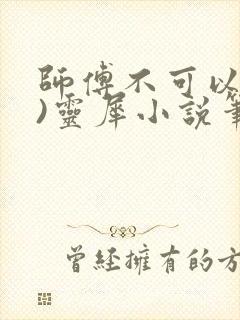 師傅不可以
)靈犀小說筆
曾經擁有的方